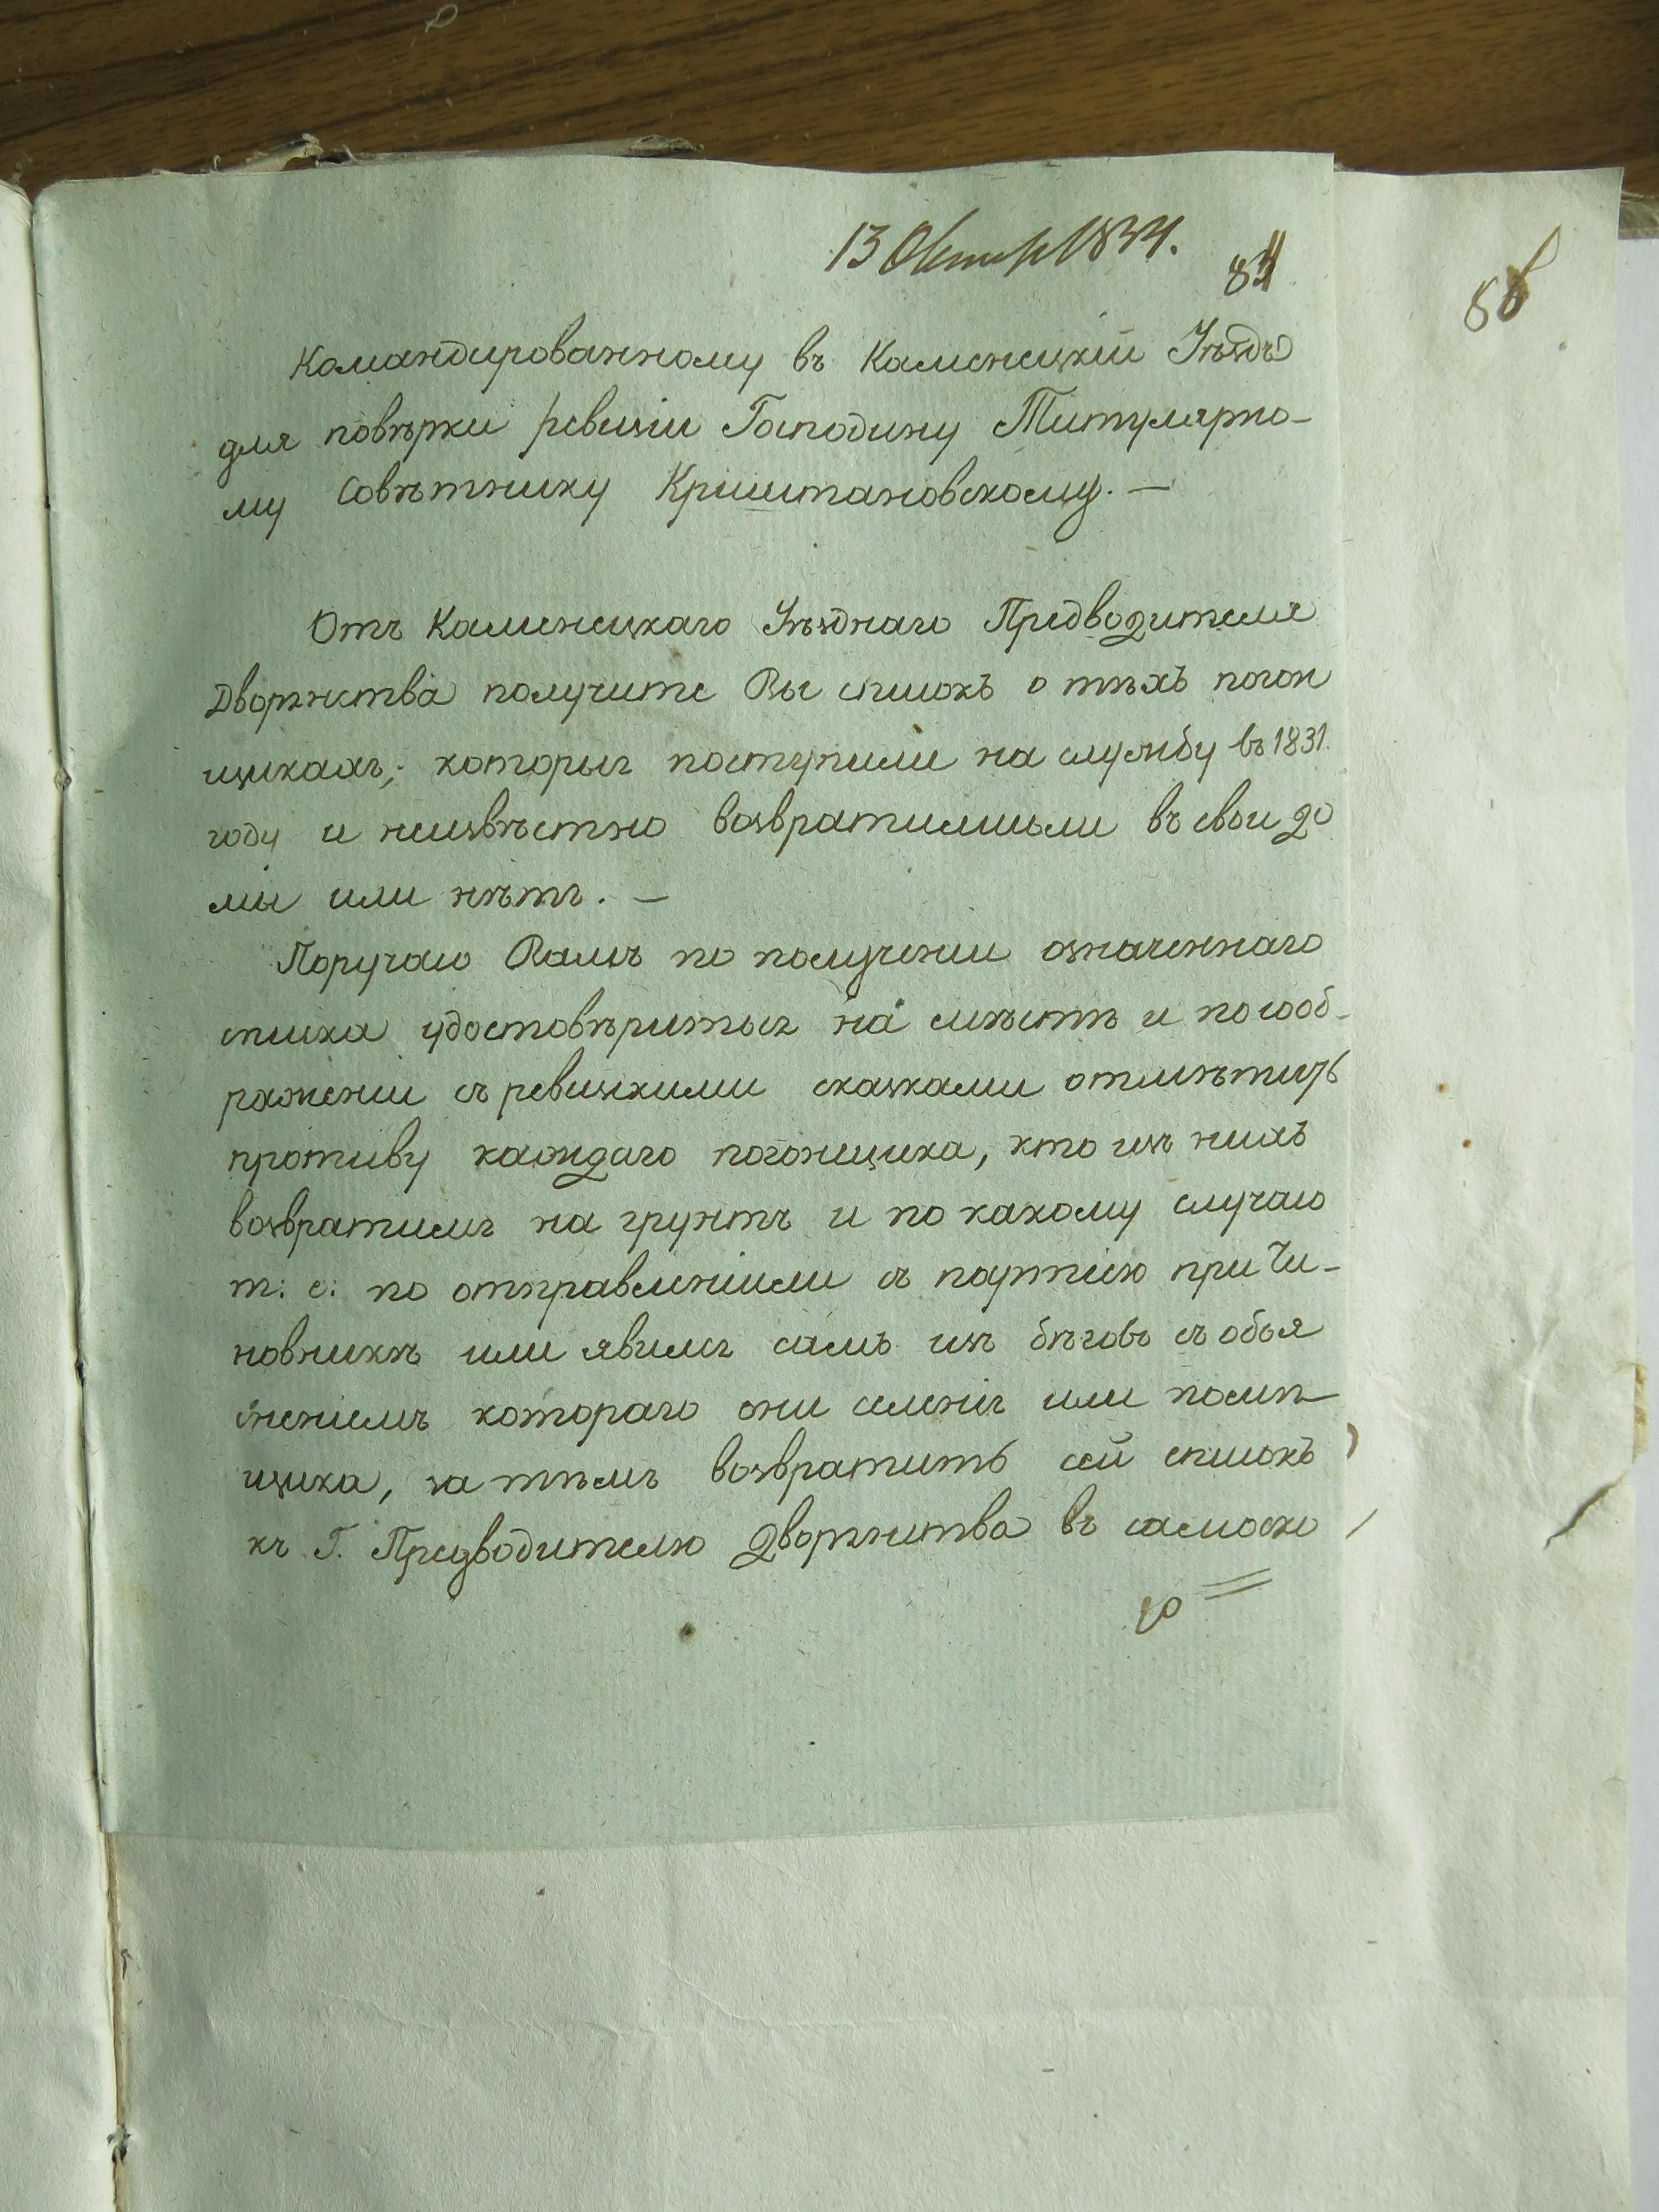 13 Октяб 1834.
84
88
Командированному въ Каменецкій Уѣздъ
для повѣрки ревизіи Господину Титулярно-
му Совѣтнику Криштановскому. —
Отъ Каменецкаго Уѣзднаго Предводителя
Дворянства получите Вы списокъ о тѣхъ погон
щикахъ, которыя поступили на службу въ 1831
году и неизвѣстно возвратилисьли въ свои до
мы или нѣтъ. —
Поручаю Вамъ по полученіи означеннаго
списка удостовѣриться на мѣстѣ и по сооб-
раженіи съ ревизкими сказками отмѣтить
противу каждаго погонщика, кто изъ нихъ
возвратился на грунтъ и по какому случаю
т: е: по отправленіили съ партіею при Чи-
новникѣ или явился самъ изъ бѣговъ съ объя
сненіемъ котораго они селенія или помѣ
щика, за тѣмъ возвратить сей списокъ
къ Г. Предводителю Дворянства въ самоско